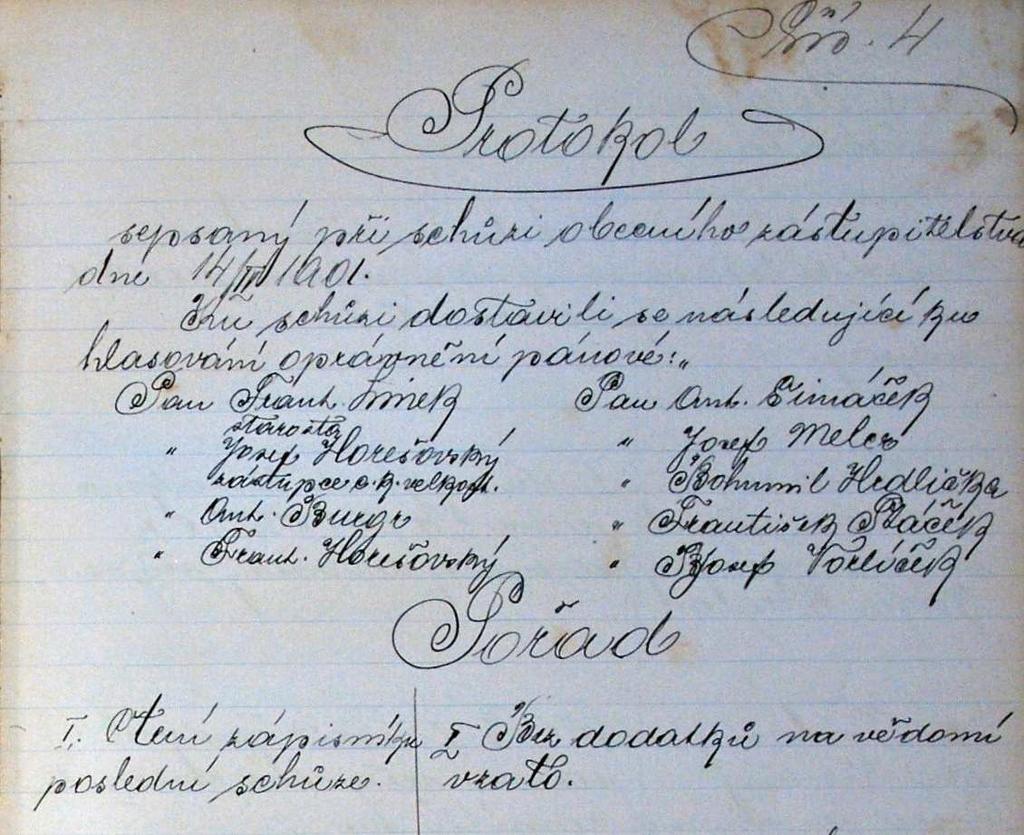 4
Protokol
sepsaný při schůzi obecního zástupitelstva
dne 14/II 1901.
Ku schůzi dostavili se následující ku
hlasování oprávnění pánové:„
Pan Frant. Limek
starosta
" Josef Horešovský
zástupce c. k. velkost.
" Ant. Burgr
" Frant. Horešovský
Pan Ant. Šimáček
" Josef Melcr
" Bohumil Hrdlička
" František Ptáček
" Josef Vorlíček
Pořad
I. Čtení zápisníku
poslední schůze.
I Bez dodatků na vědomí
vzato.